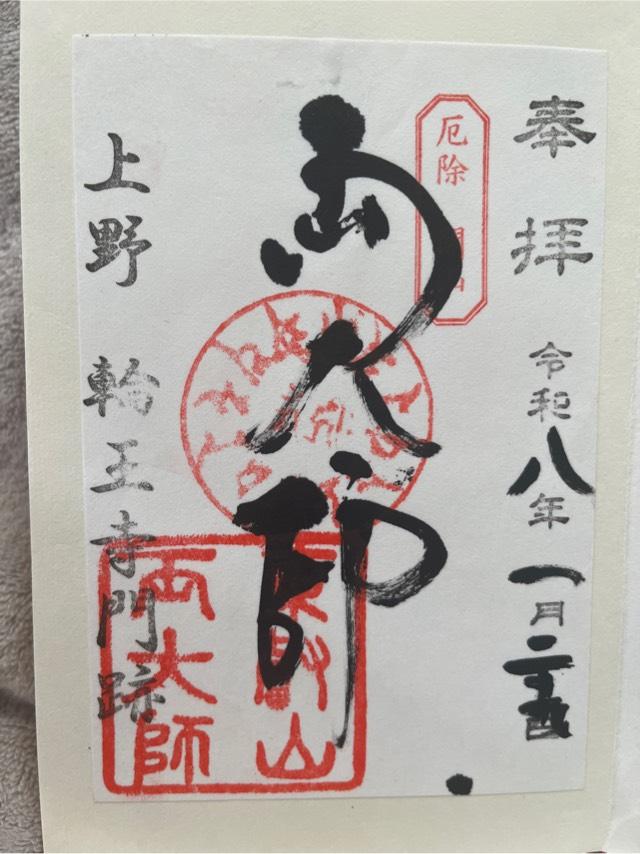 奉拝
令和八年一月二十四日
厄除
両大師
東叡山
両大師
上野 輪王寺門跡